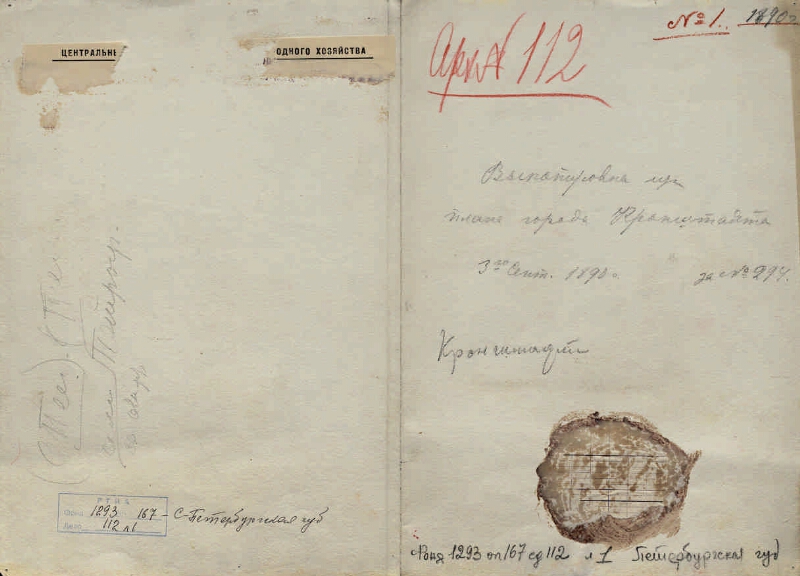 ЦЕНТРАЛЬН
ОДНОГО ХОЗЯЙСТВА
РГИА
Фонд 1293 167 С-Петербургская губ
Дело 112 л1
№1. 1890г
Арх № 112
Выкопировка из
плана города Кронштадта
3го Сент. 1890 г. за № 294.
Кронштадт
Фонд 1293 оп 167 ед 112 л 1 Петербургская губ